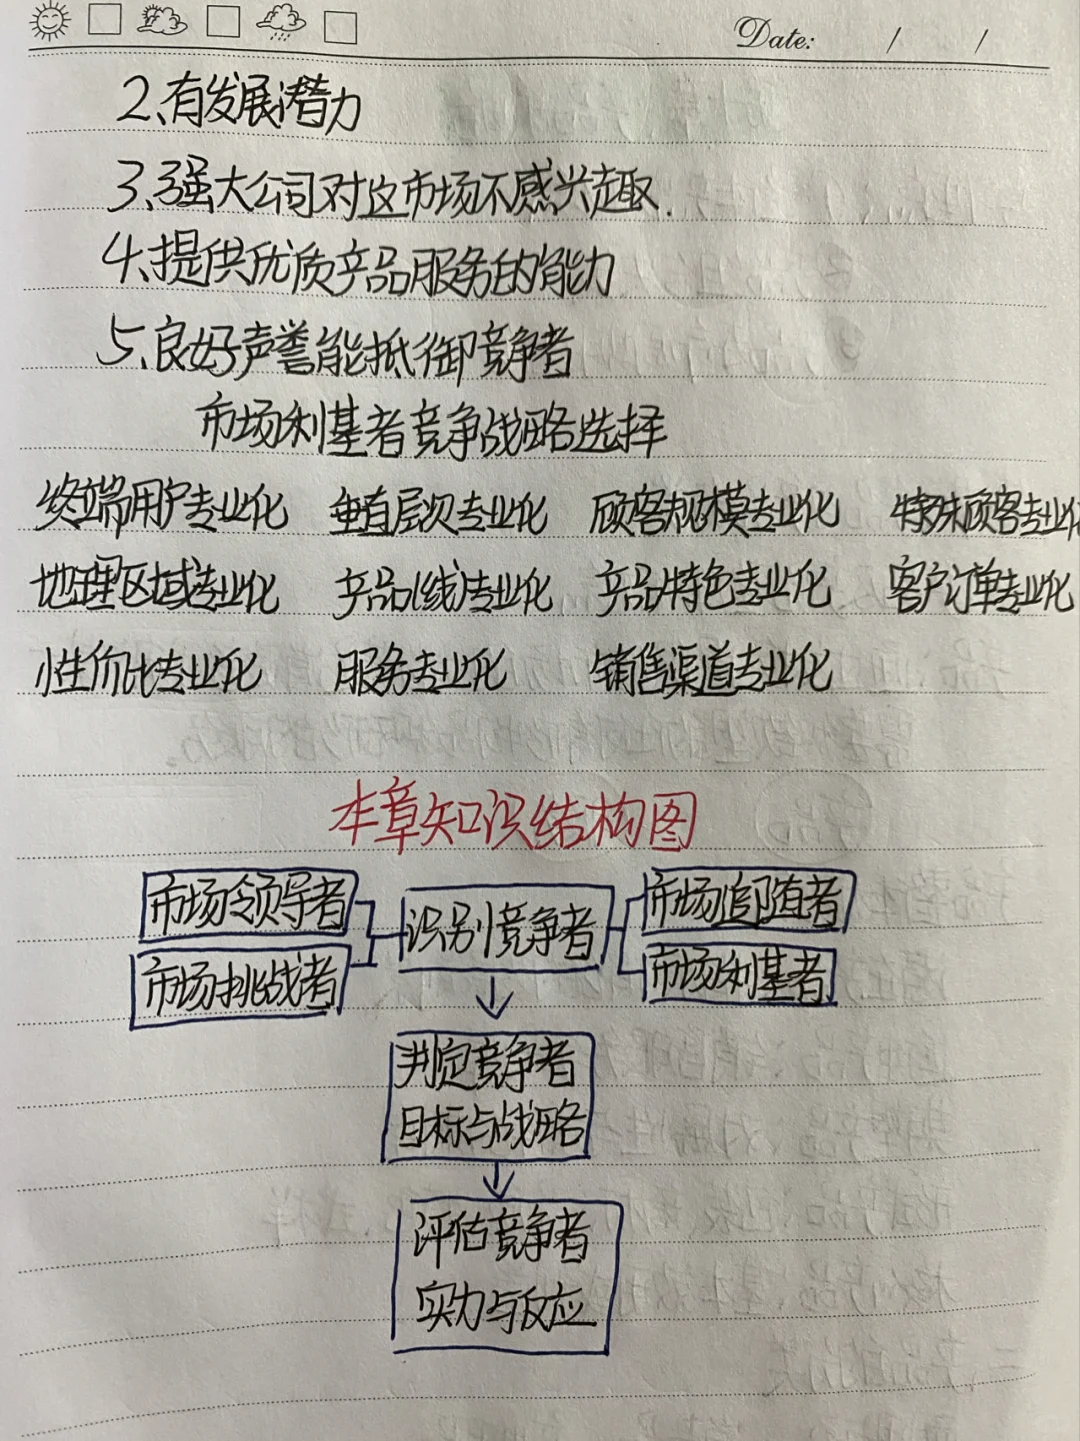 Date: / /
2、有发展潜力
3、强大公司对这市场不感兴趣.
4、提供优质产品服务的能力
5、良好声誉能抵御竞争者
市场利基者竞争战略选择
终端用户专业化 垂直层次专业化 顾客规模专业化 特殊顾客专业化
地理区域专业化 产品(线)专业化 产品特色专业化 客户订单专业化
性价比专业化 服务专业化 销售渠道专业化
本章知识结构图
市场领导者 识别竞争者 市场追随者
市场挑战者 市场利基者
判定竞争者
目标与战略
评估竞争者
实力与反应